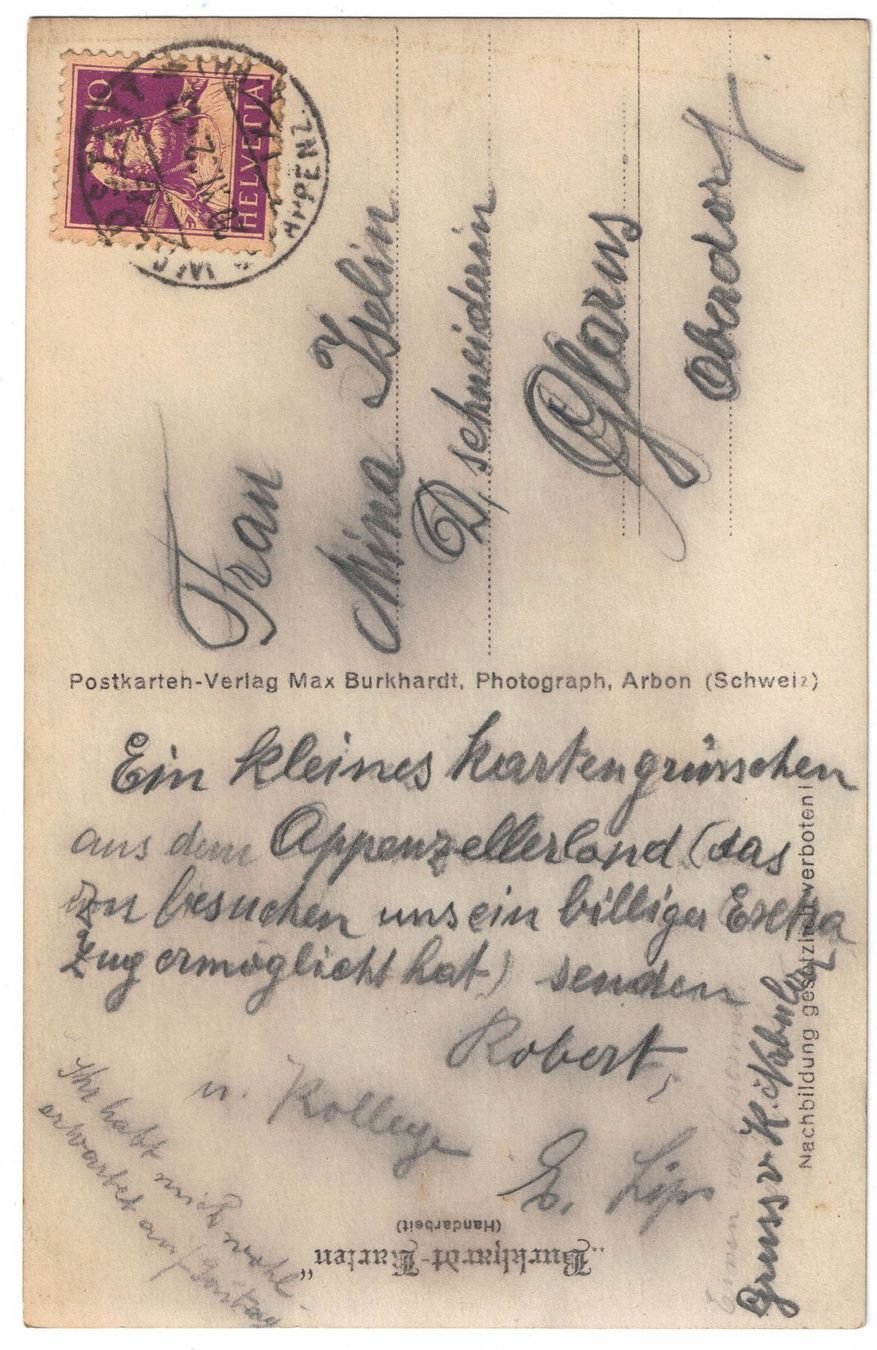 10
HELVETIA
APPENZ.
Frau
Mina Iselin
Dr. schneiderin
Glarus
Oberdorf
Postkarten-Verlag Max Burkhardt, Photograph, Arbon (Schweiz)
Ein kleines Kartengrüsschen
aus dem Appenzellerland (das
zu besuchen uns ein billiger Extra
zug ermöglicht hat) senden
Robert,
u. Kollege
E. Lips
Ihr habt mich wohl
erwartet auf
Gruss v K.
Nachbildung gesetzlich verboten!
„Burkhardt-Karten"
(Handarbeit)